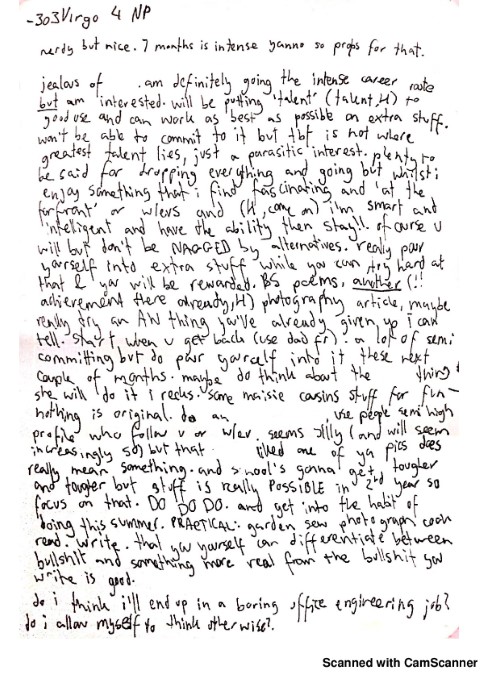 -303Virgo 4 NP
nerdy but nice. 7 months is intense yanno so props for that.
jealous of . am definitely going the intense career route
but am interested. will be putting 'talent' (talent, H) to
good use and can work as best as possible on extra stuff.
won't be able to commit to it but tbf is not where
greatest talent lies, just a parasitic interest. plenty to
be said for dropping everything and going but whilst i
enjoy something that i find fascinating and 'at the
forfront' or w/evs and (H, come on) i'm smart and
intelligent and have the ability then stay!! of course u
will but don't be NAGGED by alternatives. really pour
yourself into extra stuff while you can try hard at
that & you will be rewarded. BS poems, another (!!
achievement there already, H) photography article, maybe
really try an AN thing you've already given up i can
tell. start when u get back (use dad fr). a lot of semi
committing but do pour yourself into it these next
couple of months. maybe do think about the thing
she will do it i recks. some maisie cousins stuff for fun-
nothing is original. do an , use people semi high
profile who follow u or w/ev. seems silly (and will seem
increasingly so) but that liked one of ya pics does
really mean something. and school's gonna get tougher
and tougher but stuff is really POSSIBLE in 2nd year so
focus on that. DO DO DO. and get into the habit of
doing this summer. PRACTICAL. garden sew photograph cook
read. write. that you yourself can differentiate between
bullshit and something more real from the bullshit you
write is good.
do i think i'll end up in a boring office engineering job?
do i allow myself to think otherwise?
Scanned with CamScanner